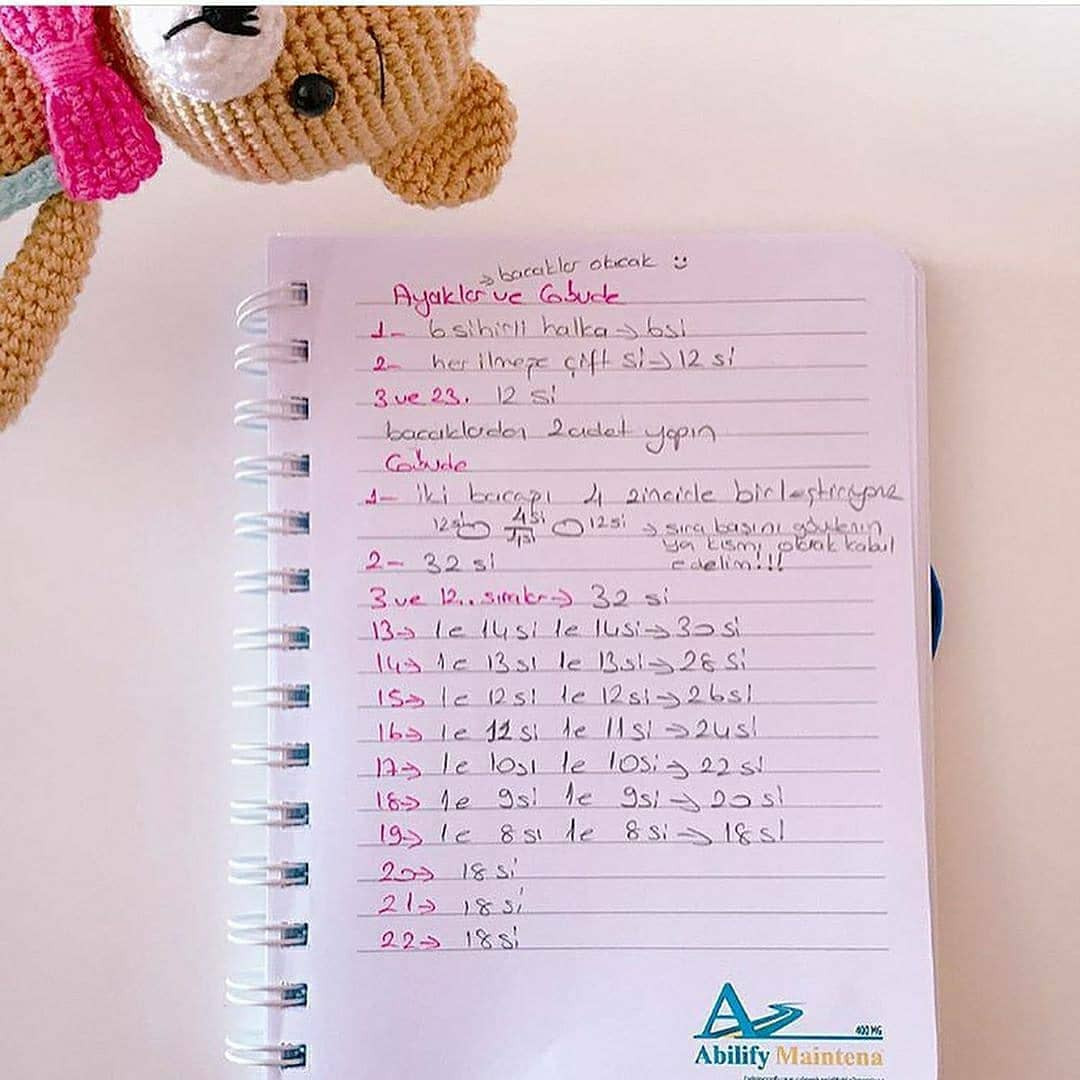 → bacaklar olucak :)
Ayaklar ve Gövde
1- 6 sihirli halka → 6si
2- her ilmeğe çift si → 12 si
3 ve 23. 12 si
bacaklardan 2 adet yapın
Gövde
1- iki bacağı 4 zincirle birleştiriyoruz
12si 4si 4si 12si → sıra başını gövdenin
ya kısmı olarak kabul
edelim!!!
2- 32 si
3 ve 12.. sıralar → 32 si
13→ 1e 14si 1e 14si → 30 si
14→ 1e 13si 1e 13si → 28 si
15→ 1e 12si 1e 12si → 26si
16→ 1e 11si 1e 11si → 24si
17→ 1e 10si 1e 10si → 22si
18→ 1e 9si 1e 9si → 20 si
19→ 1e 8si 1e 8si → 18si
20→ 18 si
21→ 18 si
22→ 18si
400 MG
Abilify Maintena